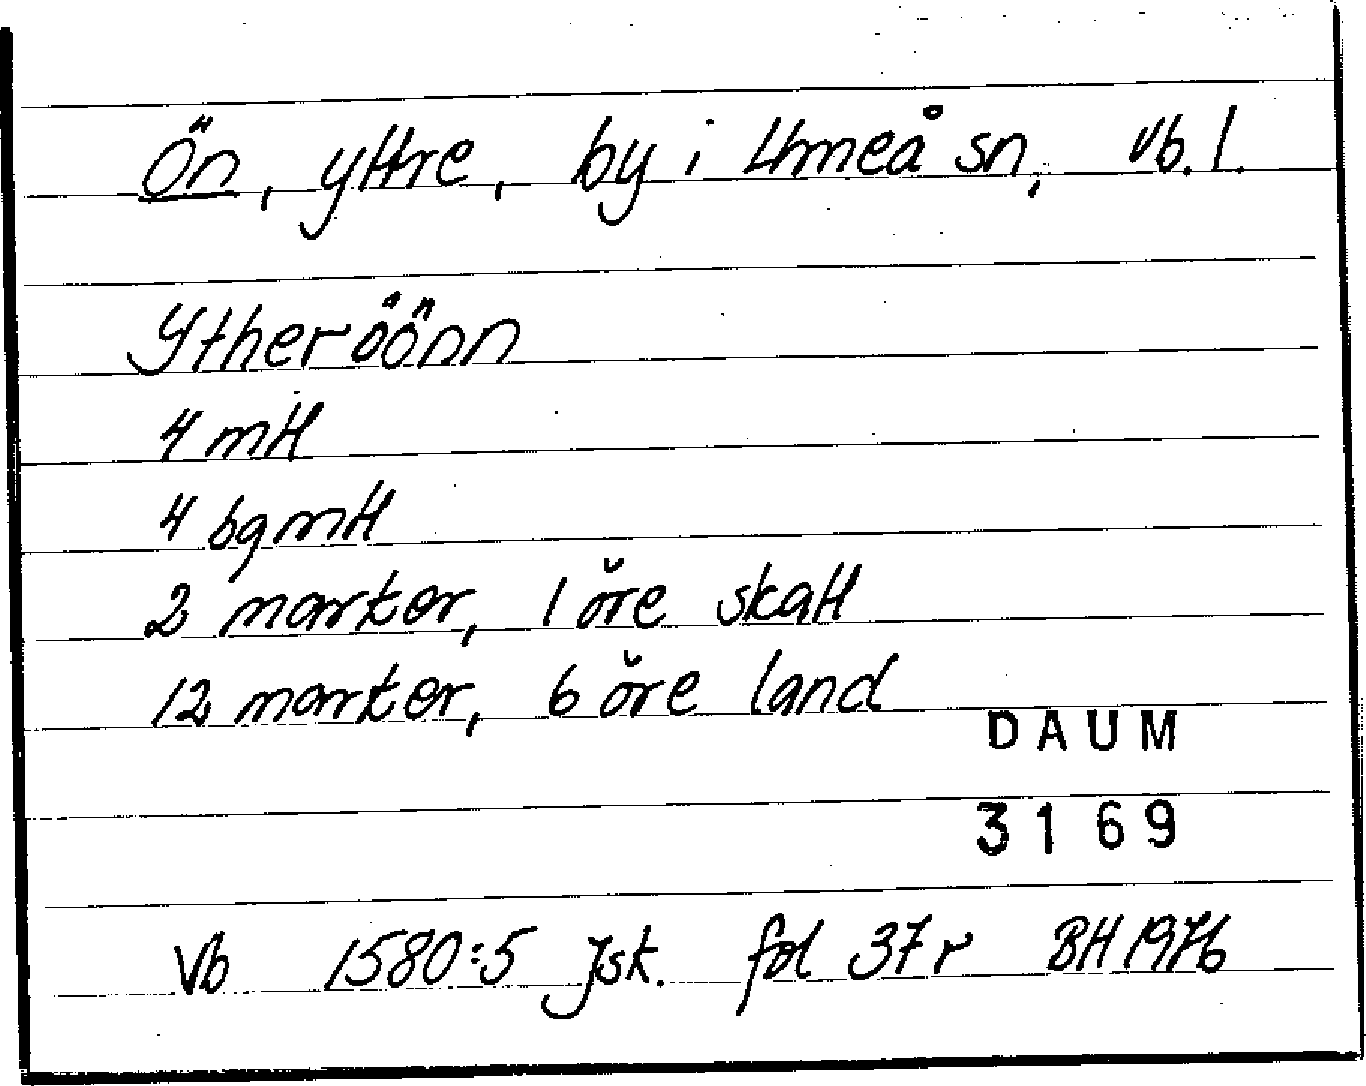 Ön, yttre, by i Umeå sn, Vb. l.
Ytheröönn
4 mtl
4 bgmtl
2 marker, 1 öre skatt
12 marker, 6 öre land
DAUM
3169
Vb 1580:5 Jsk. fol 37 r BH 1976